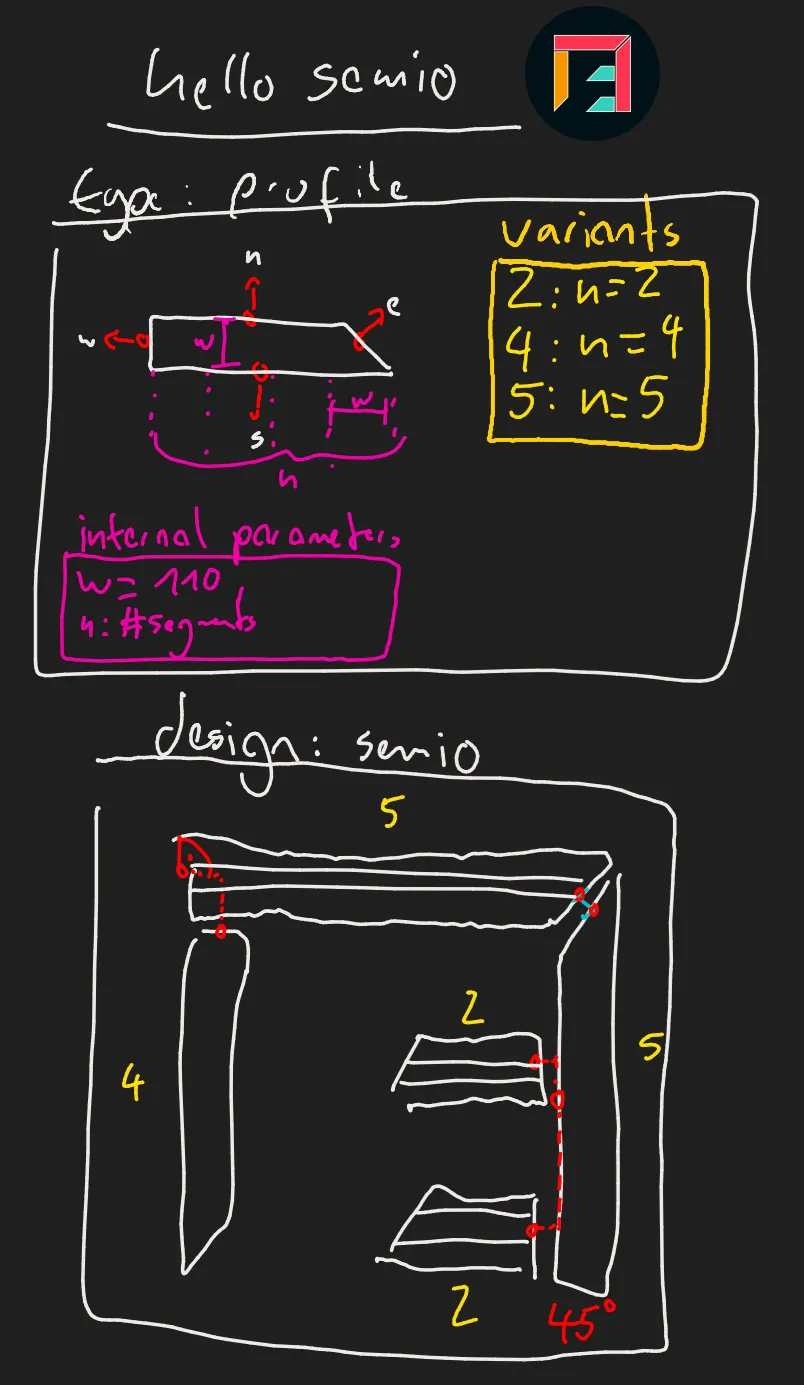 hello semio
type: profile
variants
2: n=2
4: n=4
5: n=5
n
e
w
w
w
s
n
internal parameters
w=110
n: #segments
design: semio
5
2
5
4
2
45°